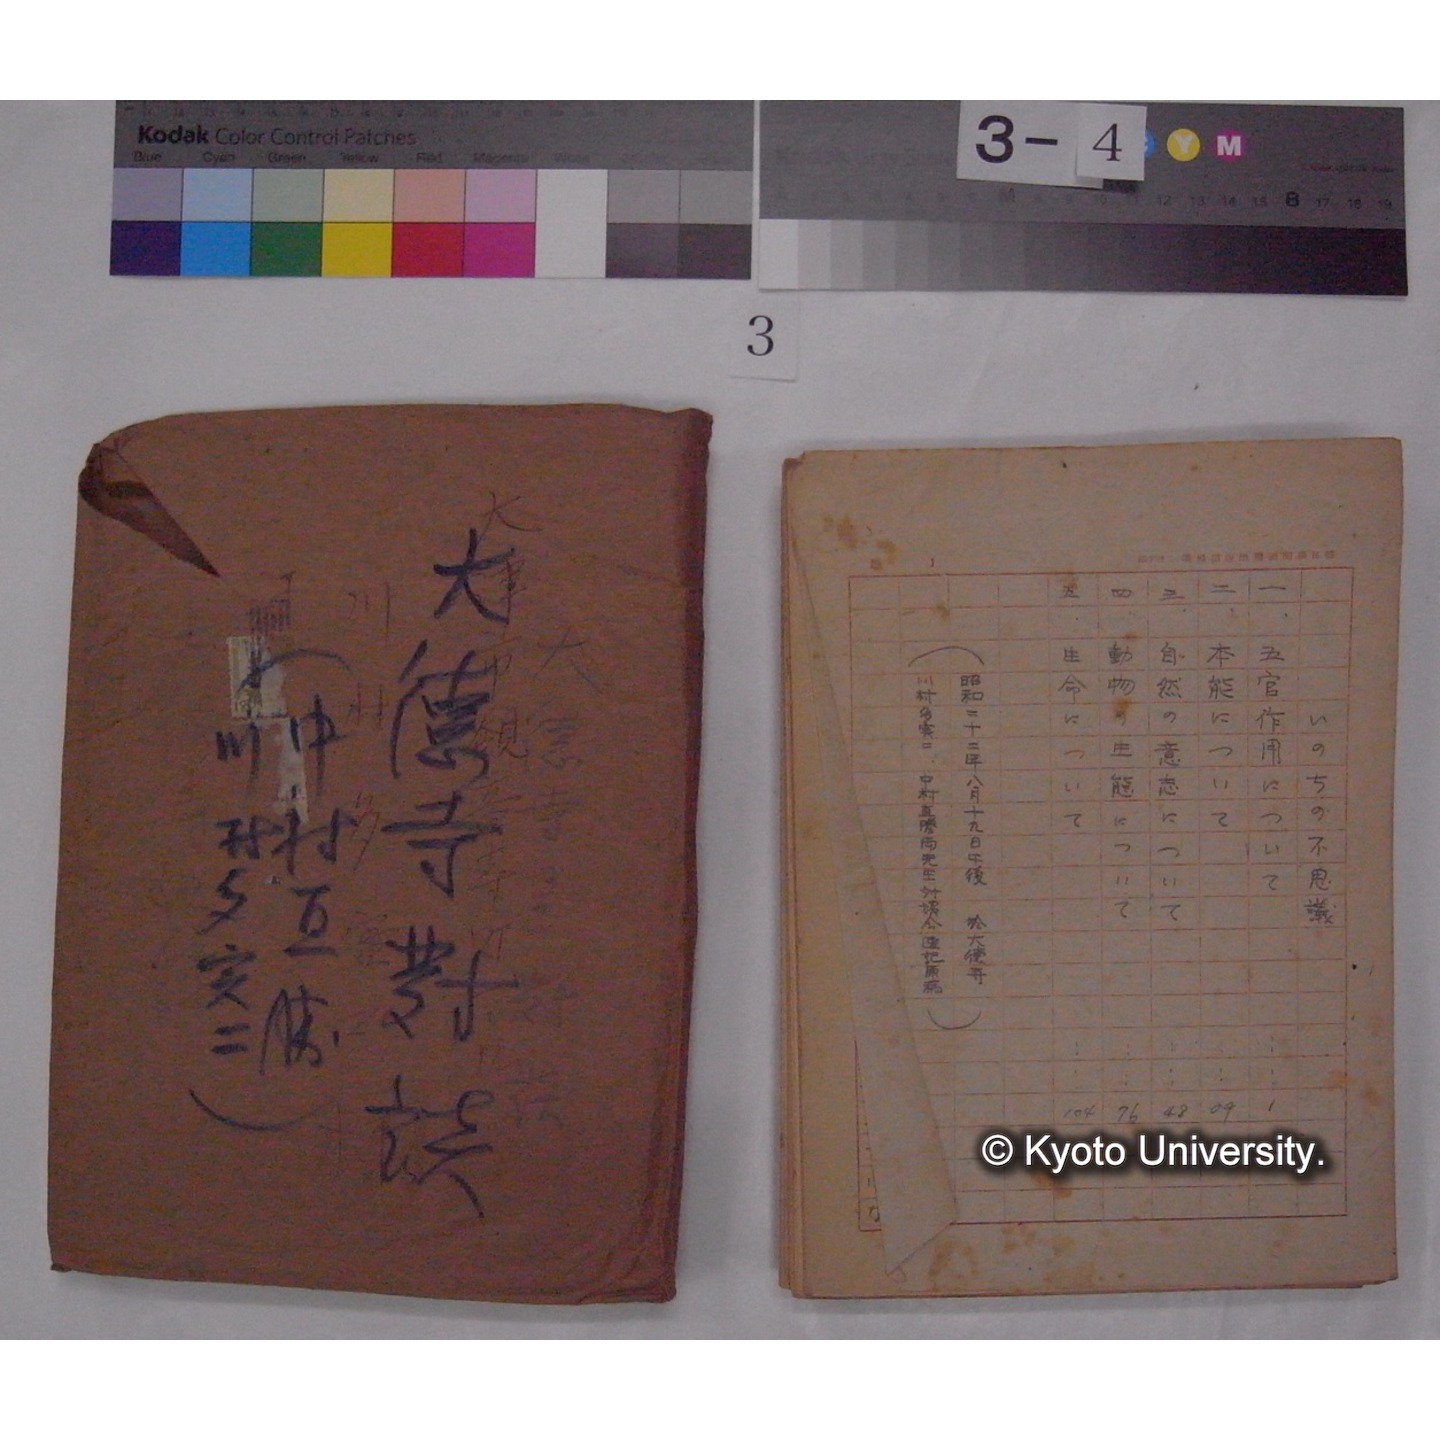 Kodak Color Control Patches
Blue Cyan Green Yellow Red Magenta White
3-4
Y M
8 9 10 11 12 13 14 15 B 17 18 19
3
大徳寺對談
(中村直勝
川村多実二)
いのちの不思議
一、五官作用について……1
二、本能について……09
三、自然の意志について……48
四、動物の生態について……76
五 生命について……104
(昭和二十二年八月十九日午後 於大徳寺
川村多実二、中村直勝両先生対談会速記原稿)
© Kyoto University.